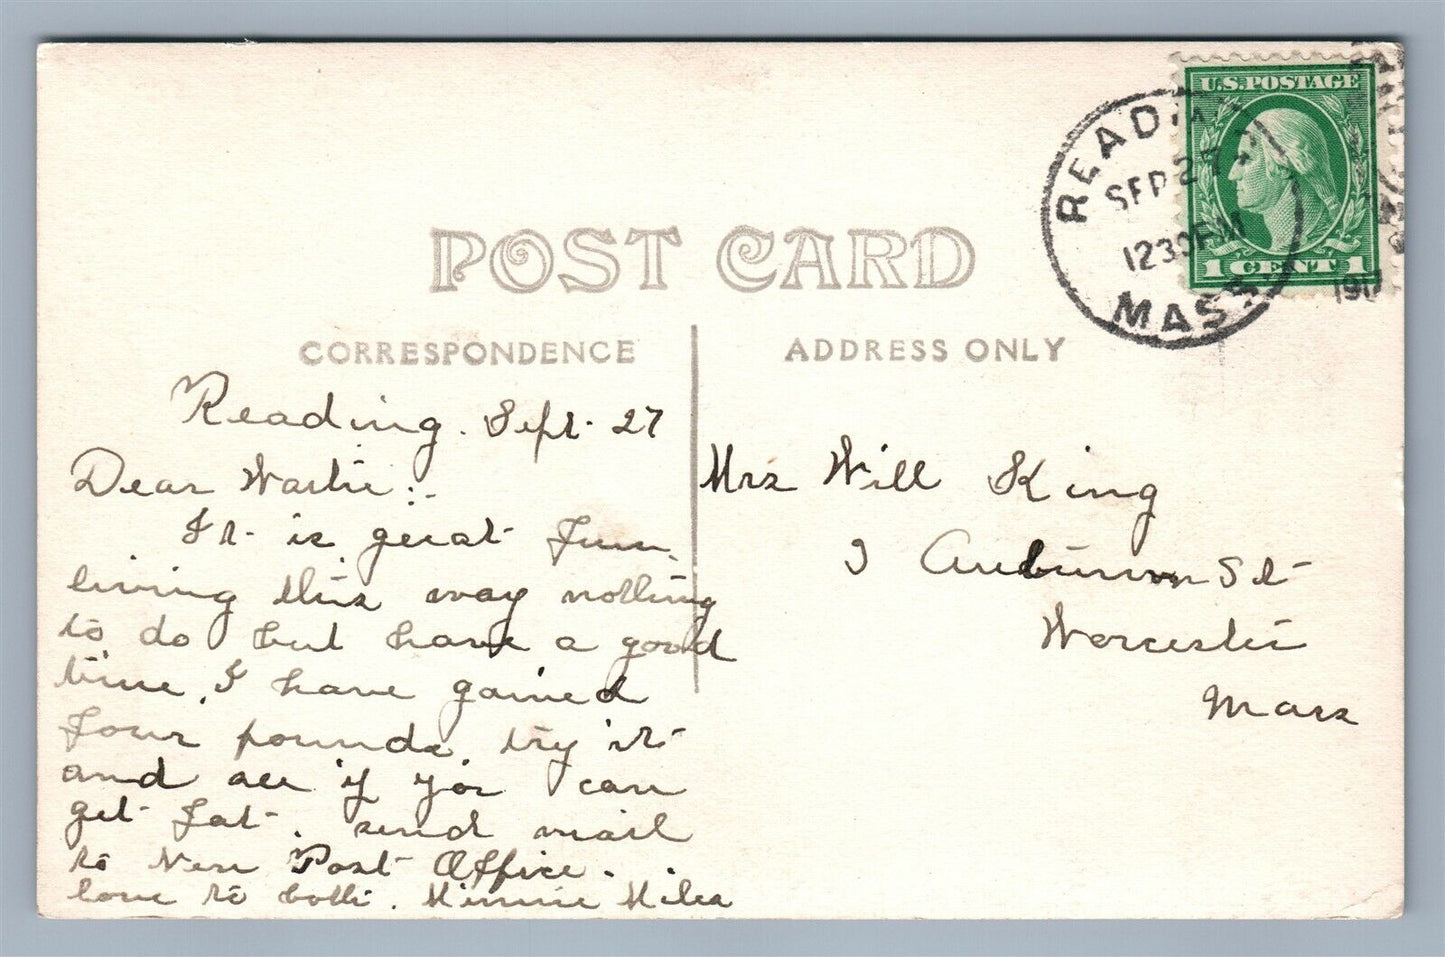 U.S. POSTAGE
1 CENT 1
READING
SEP 27
1230 PM
MASS
191
POST CARD
CORRESPONDENCE
ADDRESS ONLY
Reading. Sept. 27
Dear
It is great fun
living this way nothing
to do but have a good
time. I have gained
four pounds. try it
and see if you can
get fat. send mail
to New Post Office.
love to both. Minnie Miles
Mrs Will King
Auburn St
Worcester
Mass